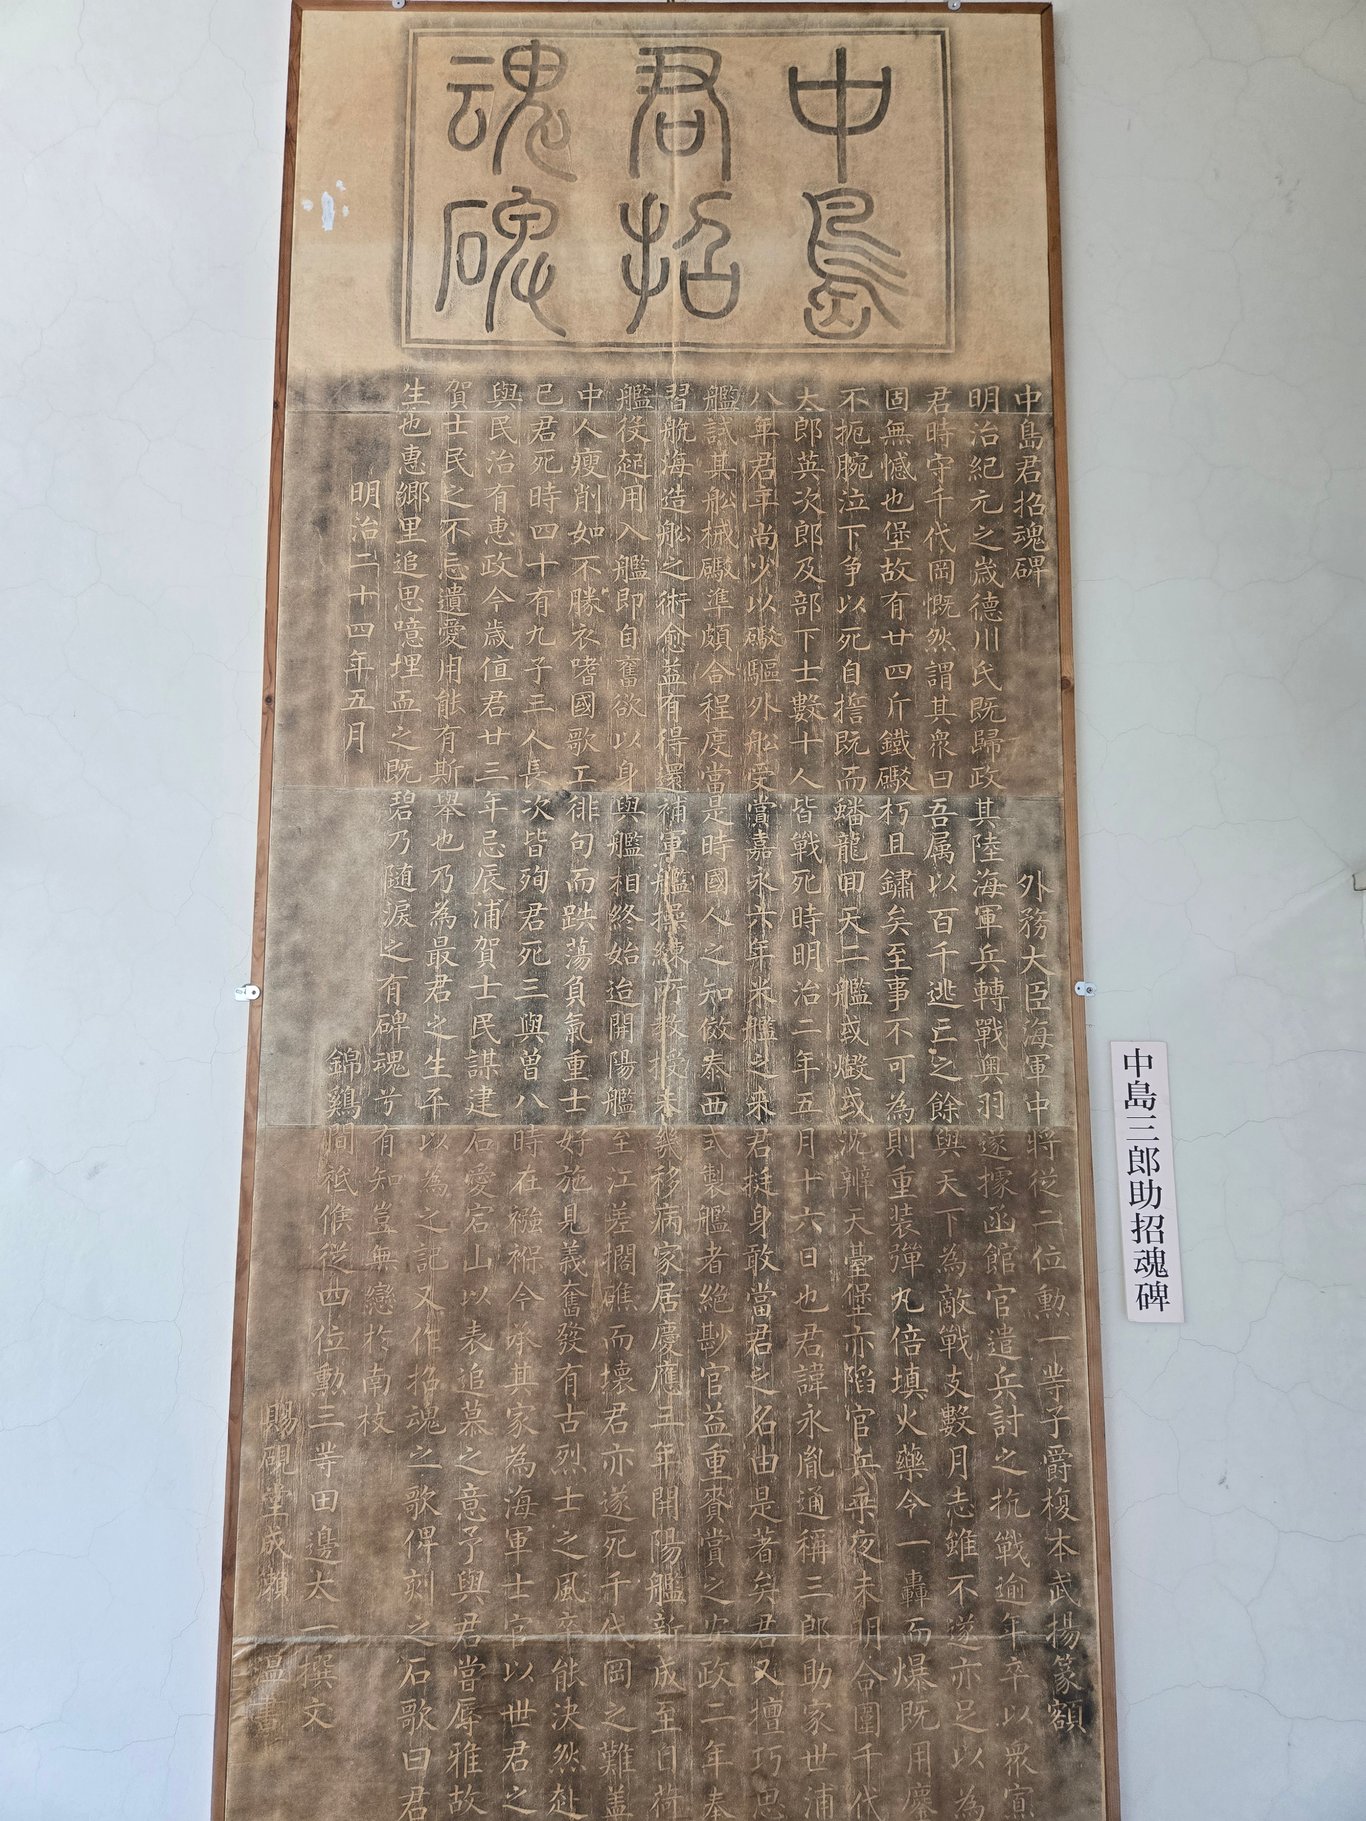 中島
君招
魂碑
中島君招魂碑 外務大臣海軍中將從二位勳一等子爵榎本武揚篆額
明治紀元之歲德川氏既歸政其陸海軍兵轉戰奥羽遂據函館官遣兵討之抗戰逾年卒以衆寡
君時守千代岡慨然謂其衆曰吾属以百千逃亡之餘與天下為敵戰支數月志雖不遂亦足以為
固無憾也堡故有廿四斤鐵礮朽且鏽矣至事不可為則重装彈丸倍填火藥今一轟而爆既用
不扼腕泣下争以死自擔既而蟠龍回天二艦或燬或沈辨天臺堡亦陷官兵乗夜未明合圍千代
太郎英次郎及部下士數十人皆戰死時明治二年五月十六日也君諱永胤通稱三郎助家世浦
八年君年尚少以礮驅外舩受賞嘉永六年米艦之来君挺身敢當君之名由是著矣君又擅巧思
艦試其舩械礮準頗合程度當是時國人之知倣泰西式製艦者絶尠官益重賚賞之安政二年奉
習航海造舩之術愈益有得還補軍艦操練所教授未幾移病家居慶應三年開陽艦新成至自荷
艦後起用入艦即自奮欲以身與艦相終始迨開陽艦至江差擱礁而壊君亦遂死千代岡之難盖
中人瘦削如不勝衣嗜國歌工徘句而跌蕩負氣重士好施見義奮發有古烈士之風卒能決然赴
已君死時四十有九子三人長次皆殉君死三與曽八時在襁褓今承其家為海軍士官以世君之
與民治有惠政今歳値君廿三年忌辰浦賀士民謀建石愛宕山以表追慕之意予與君當辱雅故
賀士民之不忘遺愛用能有斯舉也乃為最君之生平以為之記又作招魂之歌俾刻之石歌曰君
生也惠郷里追思噫埋血之既碧乃随淚之有碑魂兮有知豈無戀於南枝
明治二十四年五月 錦鷄間祗候從四位勳三等田邊太一撰文
賜硯堂成瀬温書
中島三郎助招魂碑